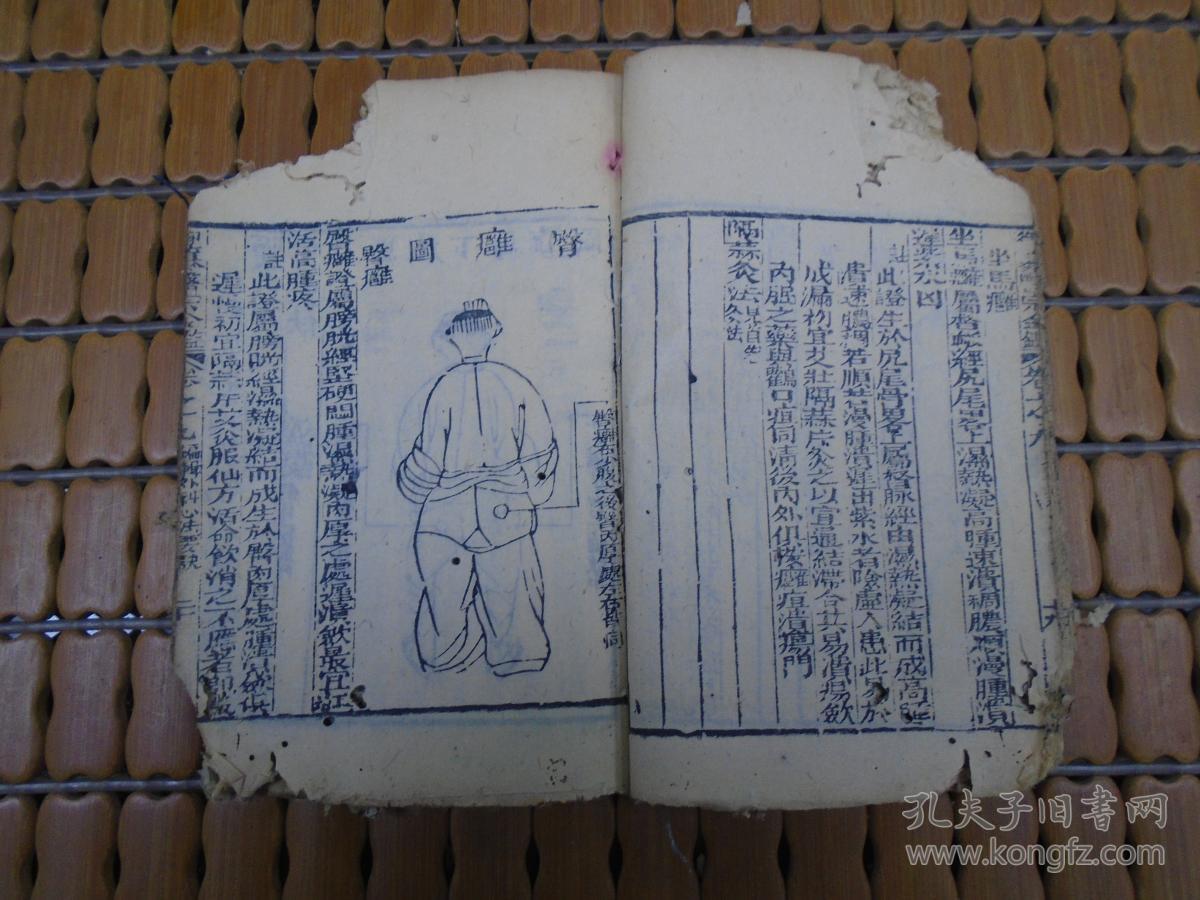 坐馬癰
坐馬癰屬督脈經尻尾畧上濕熱凝高腫速潰稠膿順漫腫潰
遲紫水凶
註 此證生於尻尾骨畧上屬督脈經由濕熱凝結而成高腫
速潰膿稠者順若漫腫潰遲出紫水者險虛人患此易於
成漏初宜艾壯隔蒜片灸之以宣通結滯令其易潰易斂
內服之藥與鸛口疽同潰後內外俱按癰疽潰瘍門
隔蒜灸法
臀癰圖
臀癰在腿之後臀肉厚處左右皆同
臀癰
臀癰證屬膀胱經堅硬悶腫濕熱凝肉厚之處遲潰斂最宜紅
活高腫疼
註 此證屬膀胱經濕熱凝結而成生於臀肉厚處腫潰斂俱
遲慢初宜隔蒜片艾灸服仙方活命飲消之不應者即服
孔夫子旧书网
www.kongfz.com